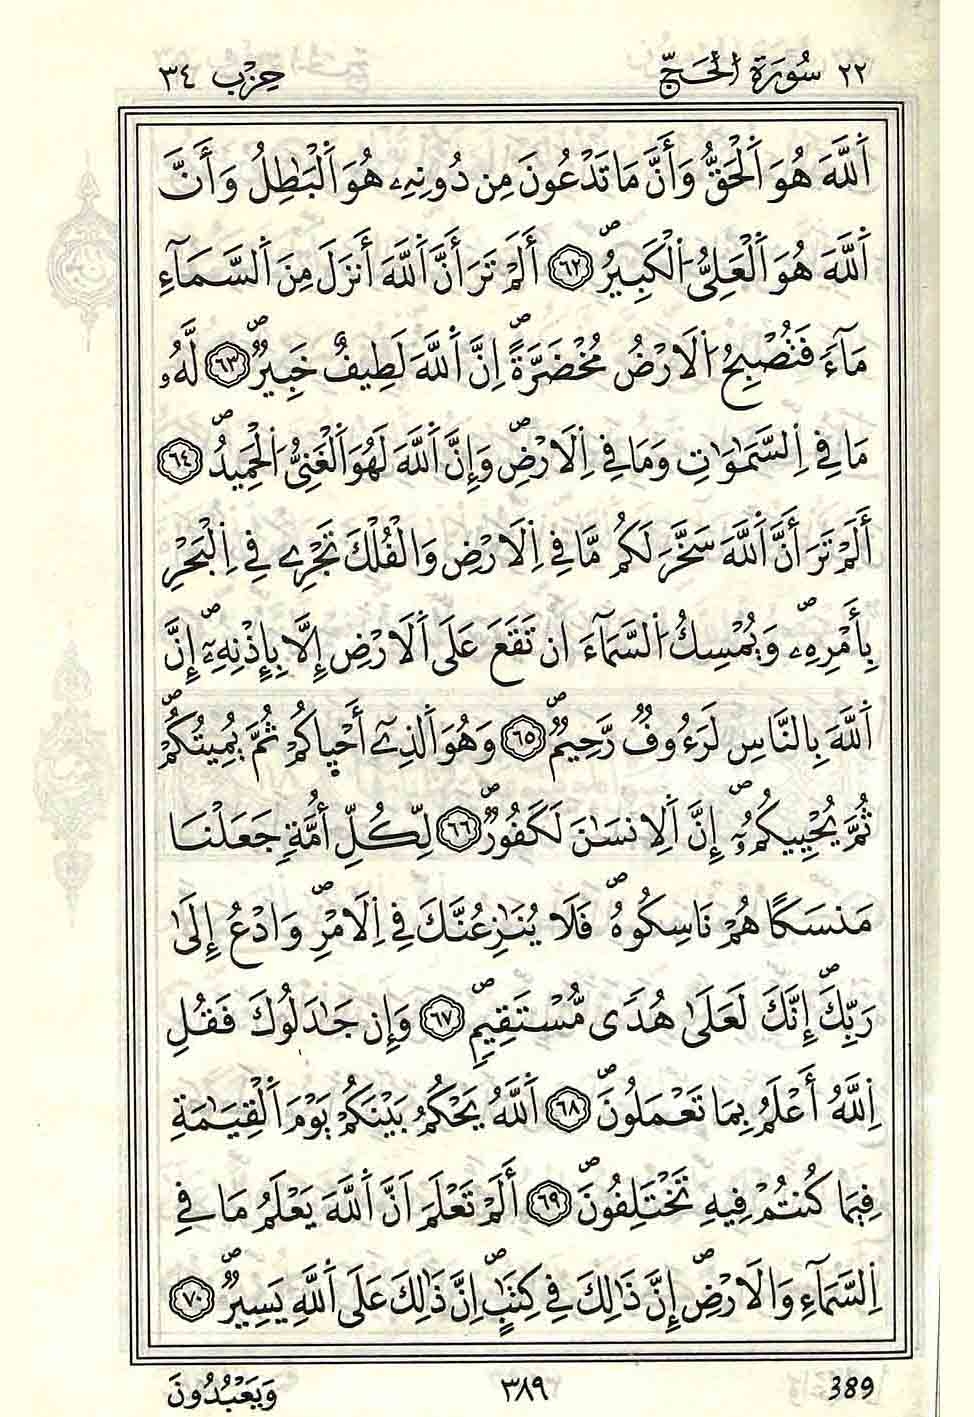 ٢٢ سُورَةُ الْحَجِّ حِزْب ٣٤
اَ۬للَّهَ هُوَ اَ۬لْحَقُّ وَأَنَّ مَا تَدْعُونَ مِن دُونِهِۦ هُوَ اَ۬لْبَٰطِلُ وَأَنَّ
اَ۬للَّهَ هُوَ اَ۬لْعَلِيُّ اُ۬لْكَبِيرُۖ ٦٢ أَلَمْ تَرَ أَنَّ اَ۬للَّهَ أَنزَلَ مِنَ اَ۬لسَّمَآءِ
مَآءٗ فَتُصْبِحُ اُ۬لَارْضُ مُخْضَرَّةًۖ اِنَّ اَ۬للَّهَ لَطِيفٌ خَبِيرٞۖ ٦٣ لَّهُۥ
مَا فِي اِ۬لسَّمَٰوَٰتِ وَمَا فِي اِ۬لَارْضِۖ وَإِنَّ اَ۬للَّهَ لَهُوَ اَ۬لْغَنِيُّ اُ۬لْحَمِيدُۖ ٦٤
أَلَمْ تَرَ أَنَّ اَ۬للَّهَ سَخَّرَ لَكُم مَّا فِي اِ۬لَارْضِ وَالْفُلْكَ تَجْرِے فِي اِ۬لْبَحْرِ
بِأَمْرِهِۦۖ وَيُمْسِكُ اُ۬لسَّمَآءَ ان تَقَعَ عَلَى اَ۬لَارْضِ إِلَّا بِإِذْنِهِۦٓۖ إِنَّ
اَ۬للَّهَ بِالنَّاسِ لَرَءُوفٞ رَّحِيمٞۖ ٦٥ وَهُوَ اَ۬لذِےٓ أَحْيٜاكُمْ ثُمَّ يُمِيتُكُمْۖ
ثُمَّ يُحْيِيكُمُۥٓۖ إِنَّ اَ۬لِانسَٰنَ لَكَفُورٞۖ ٦٦ لِّكُلِّ أُمَّةٖ جَعَلْنَا
مَنسَكاً هُمْ نَاسِكُوهُۖ فَلَا يُنَٰزِعُنَّكَ فِي اِ۬لَامْرِۖ وَادْعُ إِلَىٰ
رَبِّكَۖ إِنَّكَ لَعَلَىٰ هُدىٗ مُّسْتَقِيمٖۖ ٦٧ وَإِن جَٰدَلُوكَ فَقُلِ
اِ۬للَّهُ أَعْلَمُ بِمَا تَعْمَلُونَۖ ٦٨ اَ۬للَّهُ يَحْكُمُ بَيْنَكُمْ يَوْمَ اَ۬لْقِيَٰمَةِ
فِيمَا كُنتُمْ فِيهِ تَخْتَلِفُونَۖ ٦٩ أَلَمْ تَعْلَمَ اَنَّ اَ۬للَّهَ يَعْلَمُ مَا فِي
اِ۬لسَّمَآءِ وَالَارْضِۖ إِنَّ ذَٰلِكَ فِي كِتَٰبٍۖ اِنَّ ذَٰلِكَ عَلَى اَ۬للَّهِ يَسِيرٞۖ ٧٠
389 ٣٨٩ وَيَعْبُدُونَ